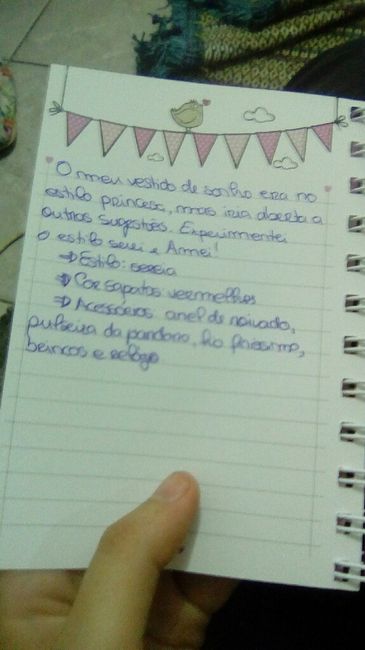 O meu vestido de sonho era no
estilo princesa, mas iria aberta a
outras sugestões. Experimentei
o estilo serei e Amei!
⇒ Estilo: sereia
⇒ Cor sapatos vermelhos
⇒ Acessórios: anel de noivado,
pulseira da pandora, fio finissimo,
brincos e relógio